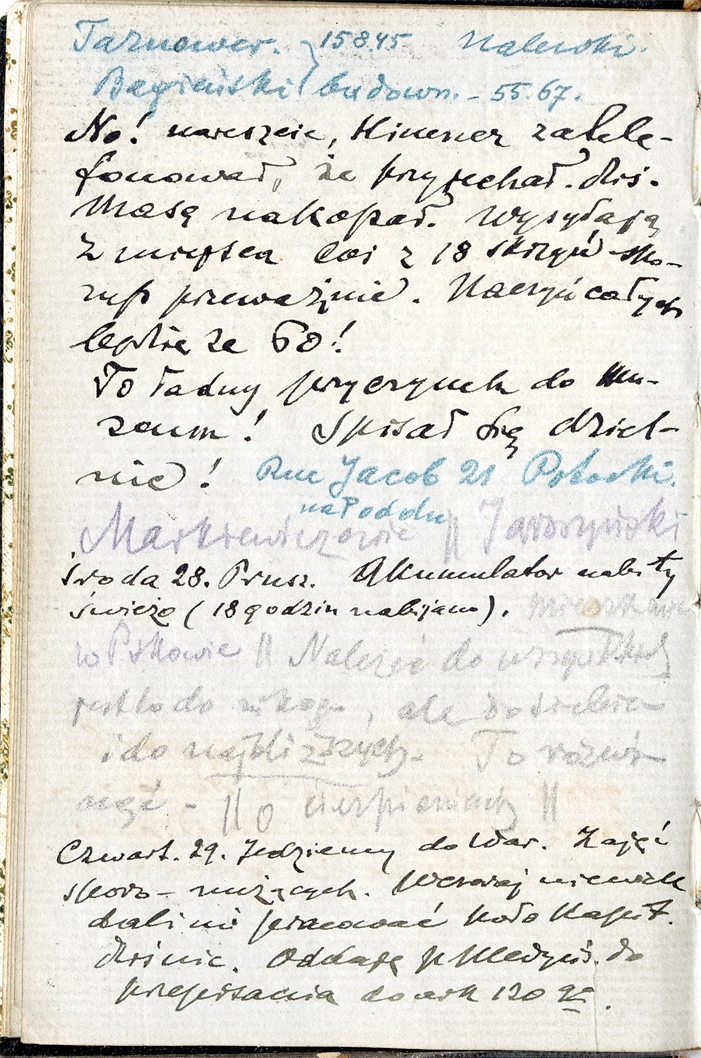 Tarnowcr. } 158.45 Nalewki.
Bagieński budown. - 55.67.
No! nareszcie, Hinener zatele-
fonował, że przyjechał. dziś.
Masę nakopał. Wysyłają
z miejsca coś z 18 skrzyń sko-
rup przeważnie. Naczyń całych
będzie ze 60!
To ładny przyczynek do Mu-
zeum! Spisał się dziel-
nie! Rue Jacob 21 Potocki.
na Poddu
Markiewiczowie || Jaroszyński
środa 28. Prusz. Akumulator nabity
świeżo (18 godzin nabijano).
w Pskowie || Należeć do wszystkich
jest to do nikogo, ale dotrzeć
i do najbliższych. To
- || O cierpieniach ||
Czwart. 29. Jedziemy do War. Zajęć
sporo - nużących. Wczoraj niewiele
dali mi pracować koło Kapit.
dziś nic. Oddaję p. Medyńs. do
przepisania do ark 120